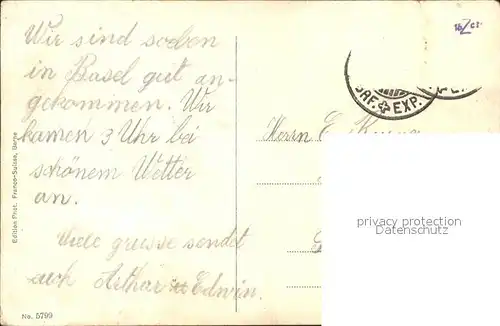 Wir sind soeben
in Basel gut an-
gekommen. Wir
kamen 3 Uhr bei
schönem Wetter
an.
Viele grüsse sendet
auch Arthur u Edwin.
Herrn E.
EXP.
privacy protection
ansichtskartenversand.com
Edition Phot. Franco-Suisse, Berne
No. 5799